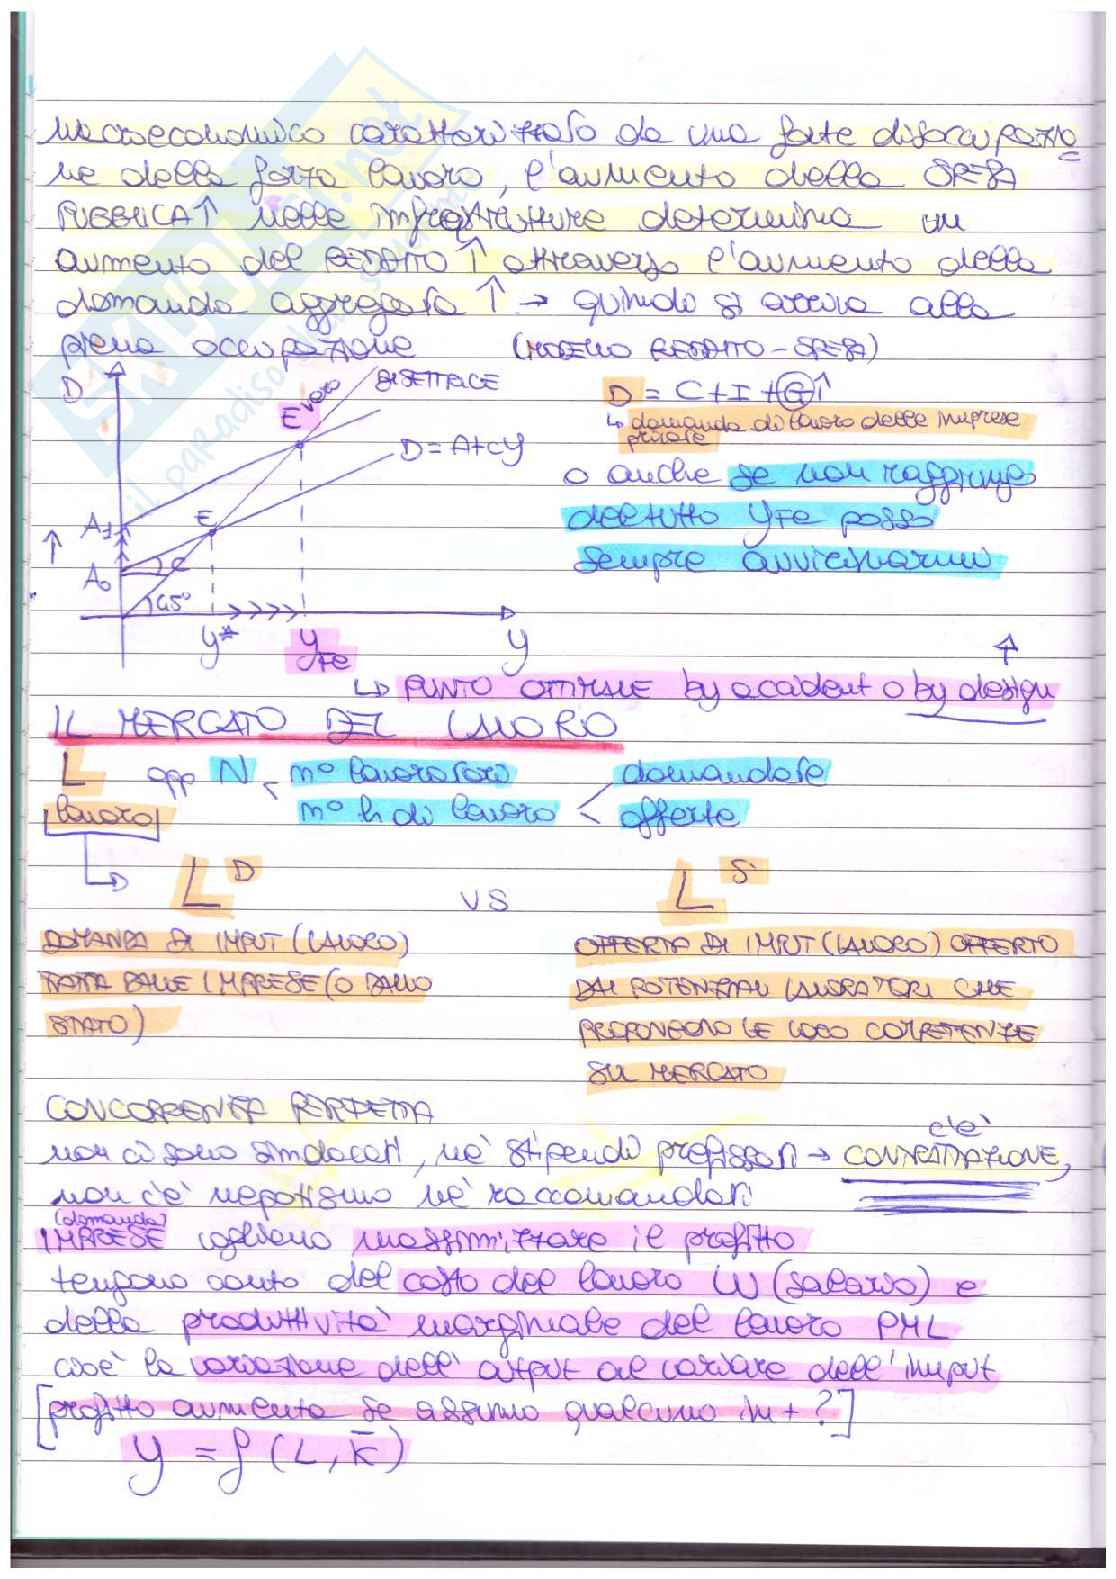 macroeconomico caratterizzato da una forte disoccupazio
ne della forza lavoro, l'aumento della SPESA
PUBBLICA ↑ nelle infrastrutture determina un
aumento del REDDITO ↑ attraverso l'aumento della
domanda aggregata ↑ → quindi si arriva alla
piena occupazione (MODELLO REDDITO-SPESA)
D
BISETTRICE
E vero
D = A+cy
A1
E
A0
c
45°
y*
yFE
y
D = C+I+G↑
↳ domanda di lavoro delle imprese
private
o anche se non raggiungo
del tutto yFE posso
sempre avvicinarmi
↑
↳ PUNTO OTTIMALE by accident o by design
IL MERCATO DEL LAVORO
L opp N, n° lavoratori domandate
lavoro n° h di lavoro < offerte
L D vs L S
DOMANDA DI INPUT (LAVORO)
FATTA DALLE IMPRESE (O DALLO
STATO)
OFFERTA DI INPUT (LAVORO) OFFERTO
DAI POTENZIALI LAVORATORI CHE
PROPONGONO LE LORO COMPETENZE
SUL MERCATO
CONCORRENZA PERFETTA
c'è
non ci sono sindacati, né stipendi prefissati → CONTRATTAZIONE,
non c'è nepotismo né raccomandati
(domanda)
IMPRESE vogliono massimizzare il profitto
tengono conto del costo del lavoro W (salario) e
della produttività marginale del lavoro PML
cioè la variazione dell'output al variare dell'input
[profitto aumenta se assumo qualcuno in + ?]
y = f (L, K̄)
SKUOLA.net
il paradiso